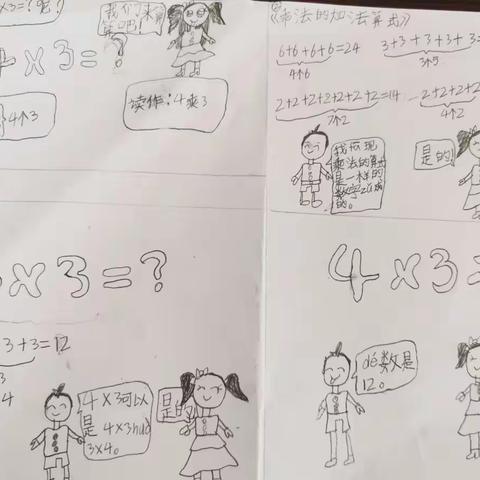 ×3=?呢?
我们来算
算吧!
4×3=?
4个3
读作:4乘3
《乘法的加法算式》
6+6+6+6=24
4个6
3+3+3+3+3=
3个5
2+2+2+2+2+2+2=14
7个2
2+2+2+2
4个2
我发现
乘法的算式
是一样的
数字
的。
是的!
×3=?
3+3=12
3
4
4×3可以
是 4×3huò
3×4。
是的
4×3=
dé数是
12。